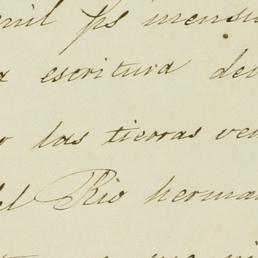 mil ps mensu
a escritura de
las tierras ve
del Rio herma